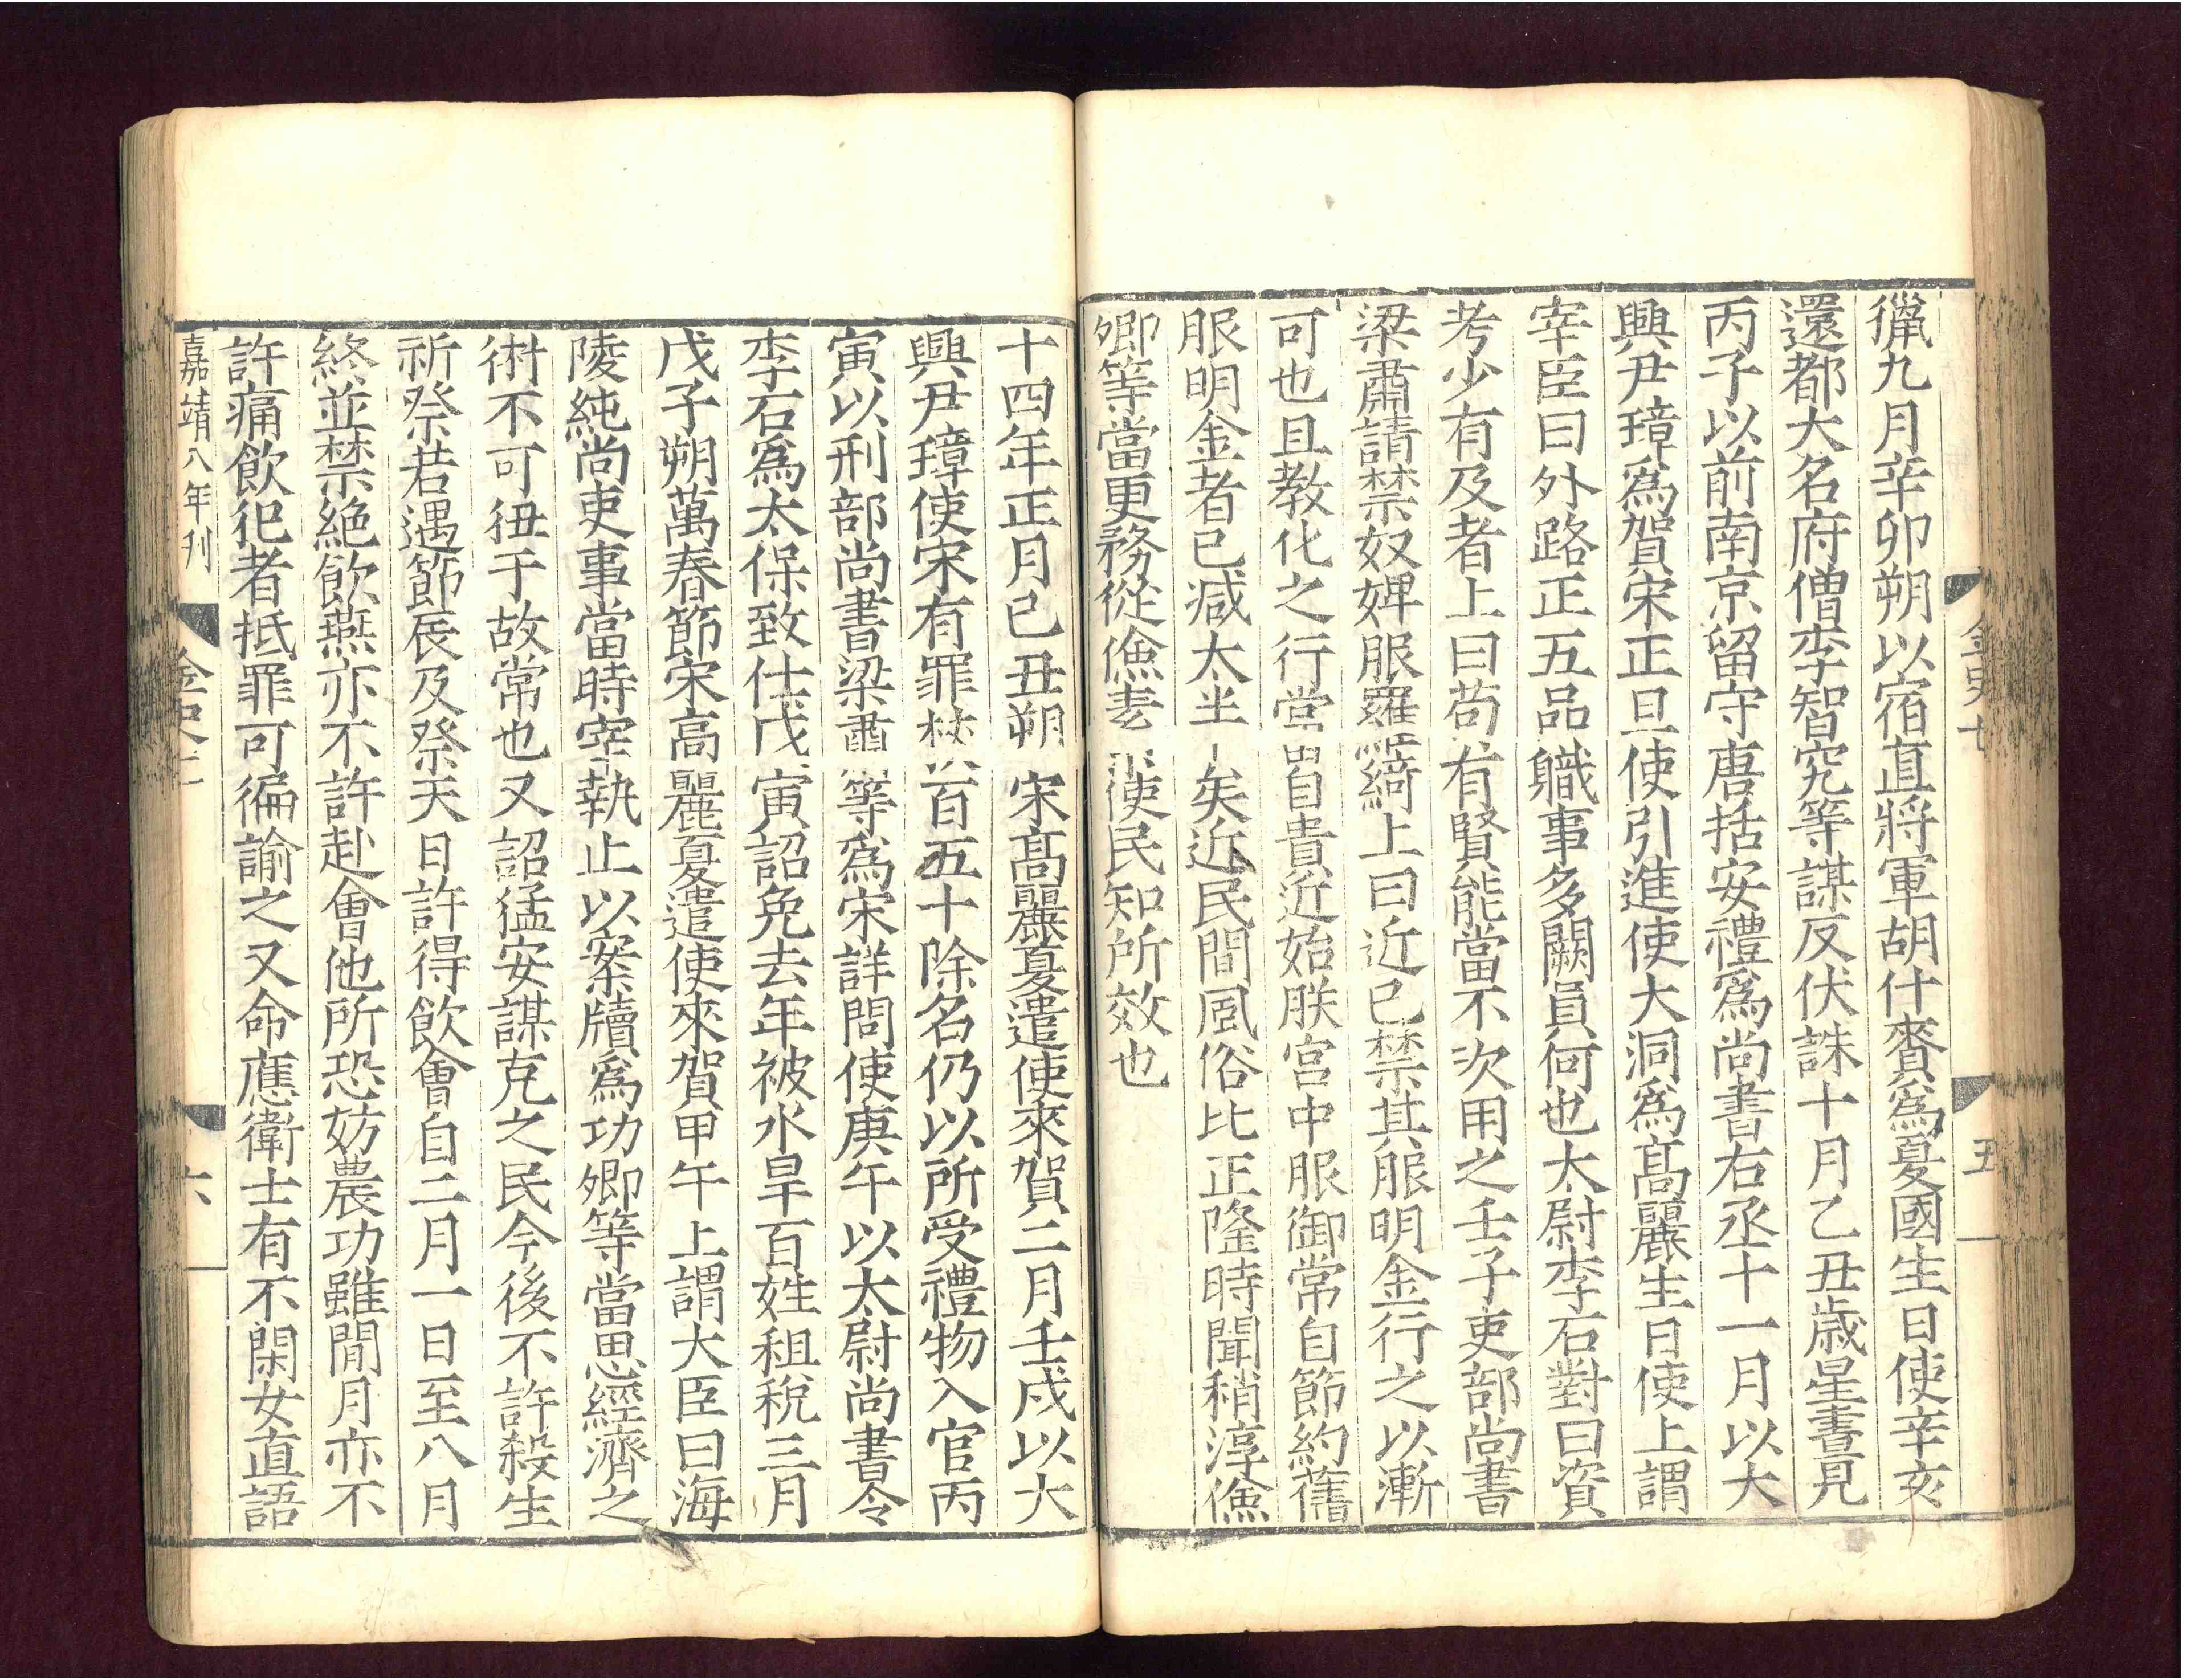 獵九月辛卯朔以宿直將軍胡什賚爲夏國生日使辛亥
還都大名府僧李智究等謀反伏誅十月乙丑歳星晝見
丙子以前南京留守唐括安禮爲尚書右丞十一月以大
興尹璋爲賀宋正旦使引進使大洞爲髙麗生日使上謂
宰臣曰外路正五品職事多闕員何也太尉李石對曰資
考少有及者上曰苟有賢能當不次用之壬子吏部尚書
梁肅請禁奴婢服羅綺上曰近已禁其服明金行之以漸
可也且教化之行當自貴近始朕宫中服御常自節約舊
服明金者已減太半矣近民間風俗比正隆時聞稍淳儉
卿等當更務從儉素使民知所效也
金史七
五
十四年正月己丑朔宋髙麗夏遣使來賀二月壬戌以大
興尹璋使宋有罪杖百五十除名仍以所受禮物入官丙
寅以刑部尚書梁肅等爲宋詳問使庚午以太尉尚書令
李石爲太保致仕戊寅詔免去年被水旱百姓租税三月
戊子朔萬春節宋高麗夏遣使來賀甲午上謂大臣曰海
陵純尚吏事當時宰執止以案牘爲功卿等當思經濟之
術不可狃于故常也又詔猛安謀克之民今後不許殺生
祈祭若遇節辰及祭天日許得飲會自二月一日至八月
終並禁絶飲燕亦不許赴會他所恐妨農功雖閒月亦不
許痛飲犯者抵罪可徧諭之又命應衛士有不閑女直語
嘉靖八年刊
金史七
六